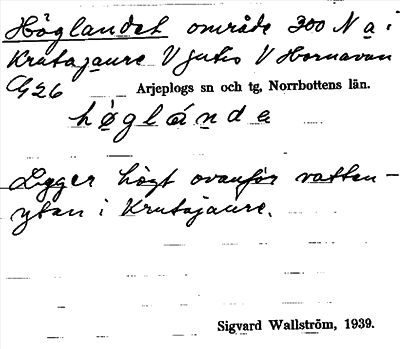 Höglandet område 300 N a.
Krutajaure V Jutis V Hornavan
G26 Arjeplogs sn och tg, Norrbottens län.
höglánde
Ligger högt ovanför vatten-
ytan i Krutajaure.
Sigvard Wallström, 1939.